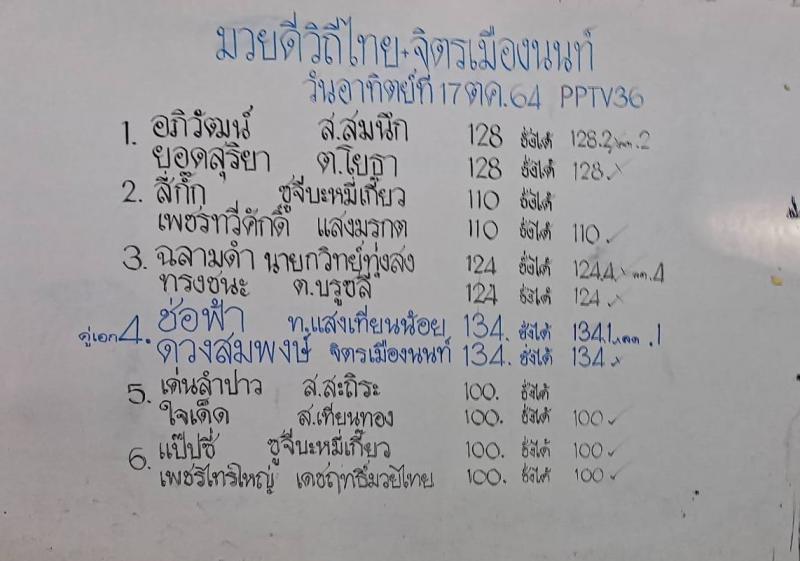 มวยดีวิถีไทย+จิตรเมืองนนท์
วันอาทิตย์ที่ 17 ตค. 64 PPTV36
1. อภิวัฒน์ ส.สมนึก 128 ชั่งได้ 128.2 ลด .2
ยอดสุริยา ต.โยธา 128 ชั่งได้ 128 ✓
2. ลี่กั๊ก ซูจีบะหมี่เกี๊ยว 110 ชั่งได้
เพชรทวีศักดิ์ แสงมรกต 110 ชั่งได้ 110 ✓
3. ฉลามดำ นายกวิทย์ทุ่งสง 124 ชั่งได้ 124.4 ลด .4
ทรงชนะ ต.บรูซลี 124 ชั่งได้ 124 ✓
คู่เอก 4. ช่อฟ้า ท.แสงเทียนน้อย 134. ชั่งได้ 134.1 ลด .1
ดวงสมพงษ์ จิตรเมืองนนท์ 134. ชั่งได้ 134 ✓
5. เด่นลำปาว ส.สะถิระ 100. ชั่งได้
ใจเด็ด ส.เทียนทอง 100. ชั่งได้ 100 ✓
6. แป๊ปซี่ ซูจีบะหมี่เกี๊ยว 100. ชั่งได้ 100 ✓
เพชรไทรใหญ่ เดชฤทธิ์มวยไทย 100. ชั่งได้ 100 ✓